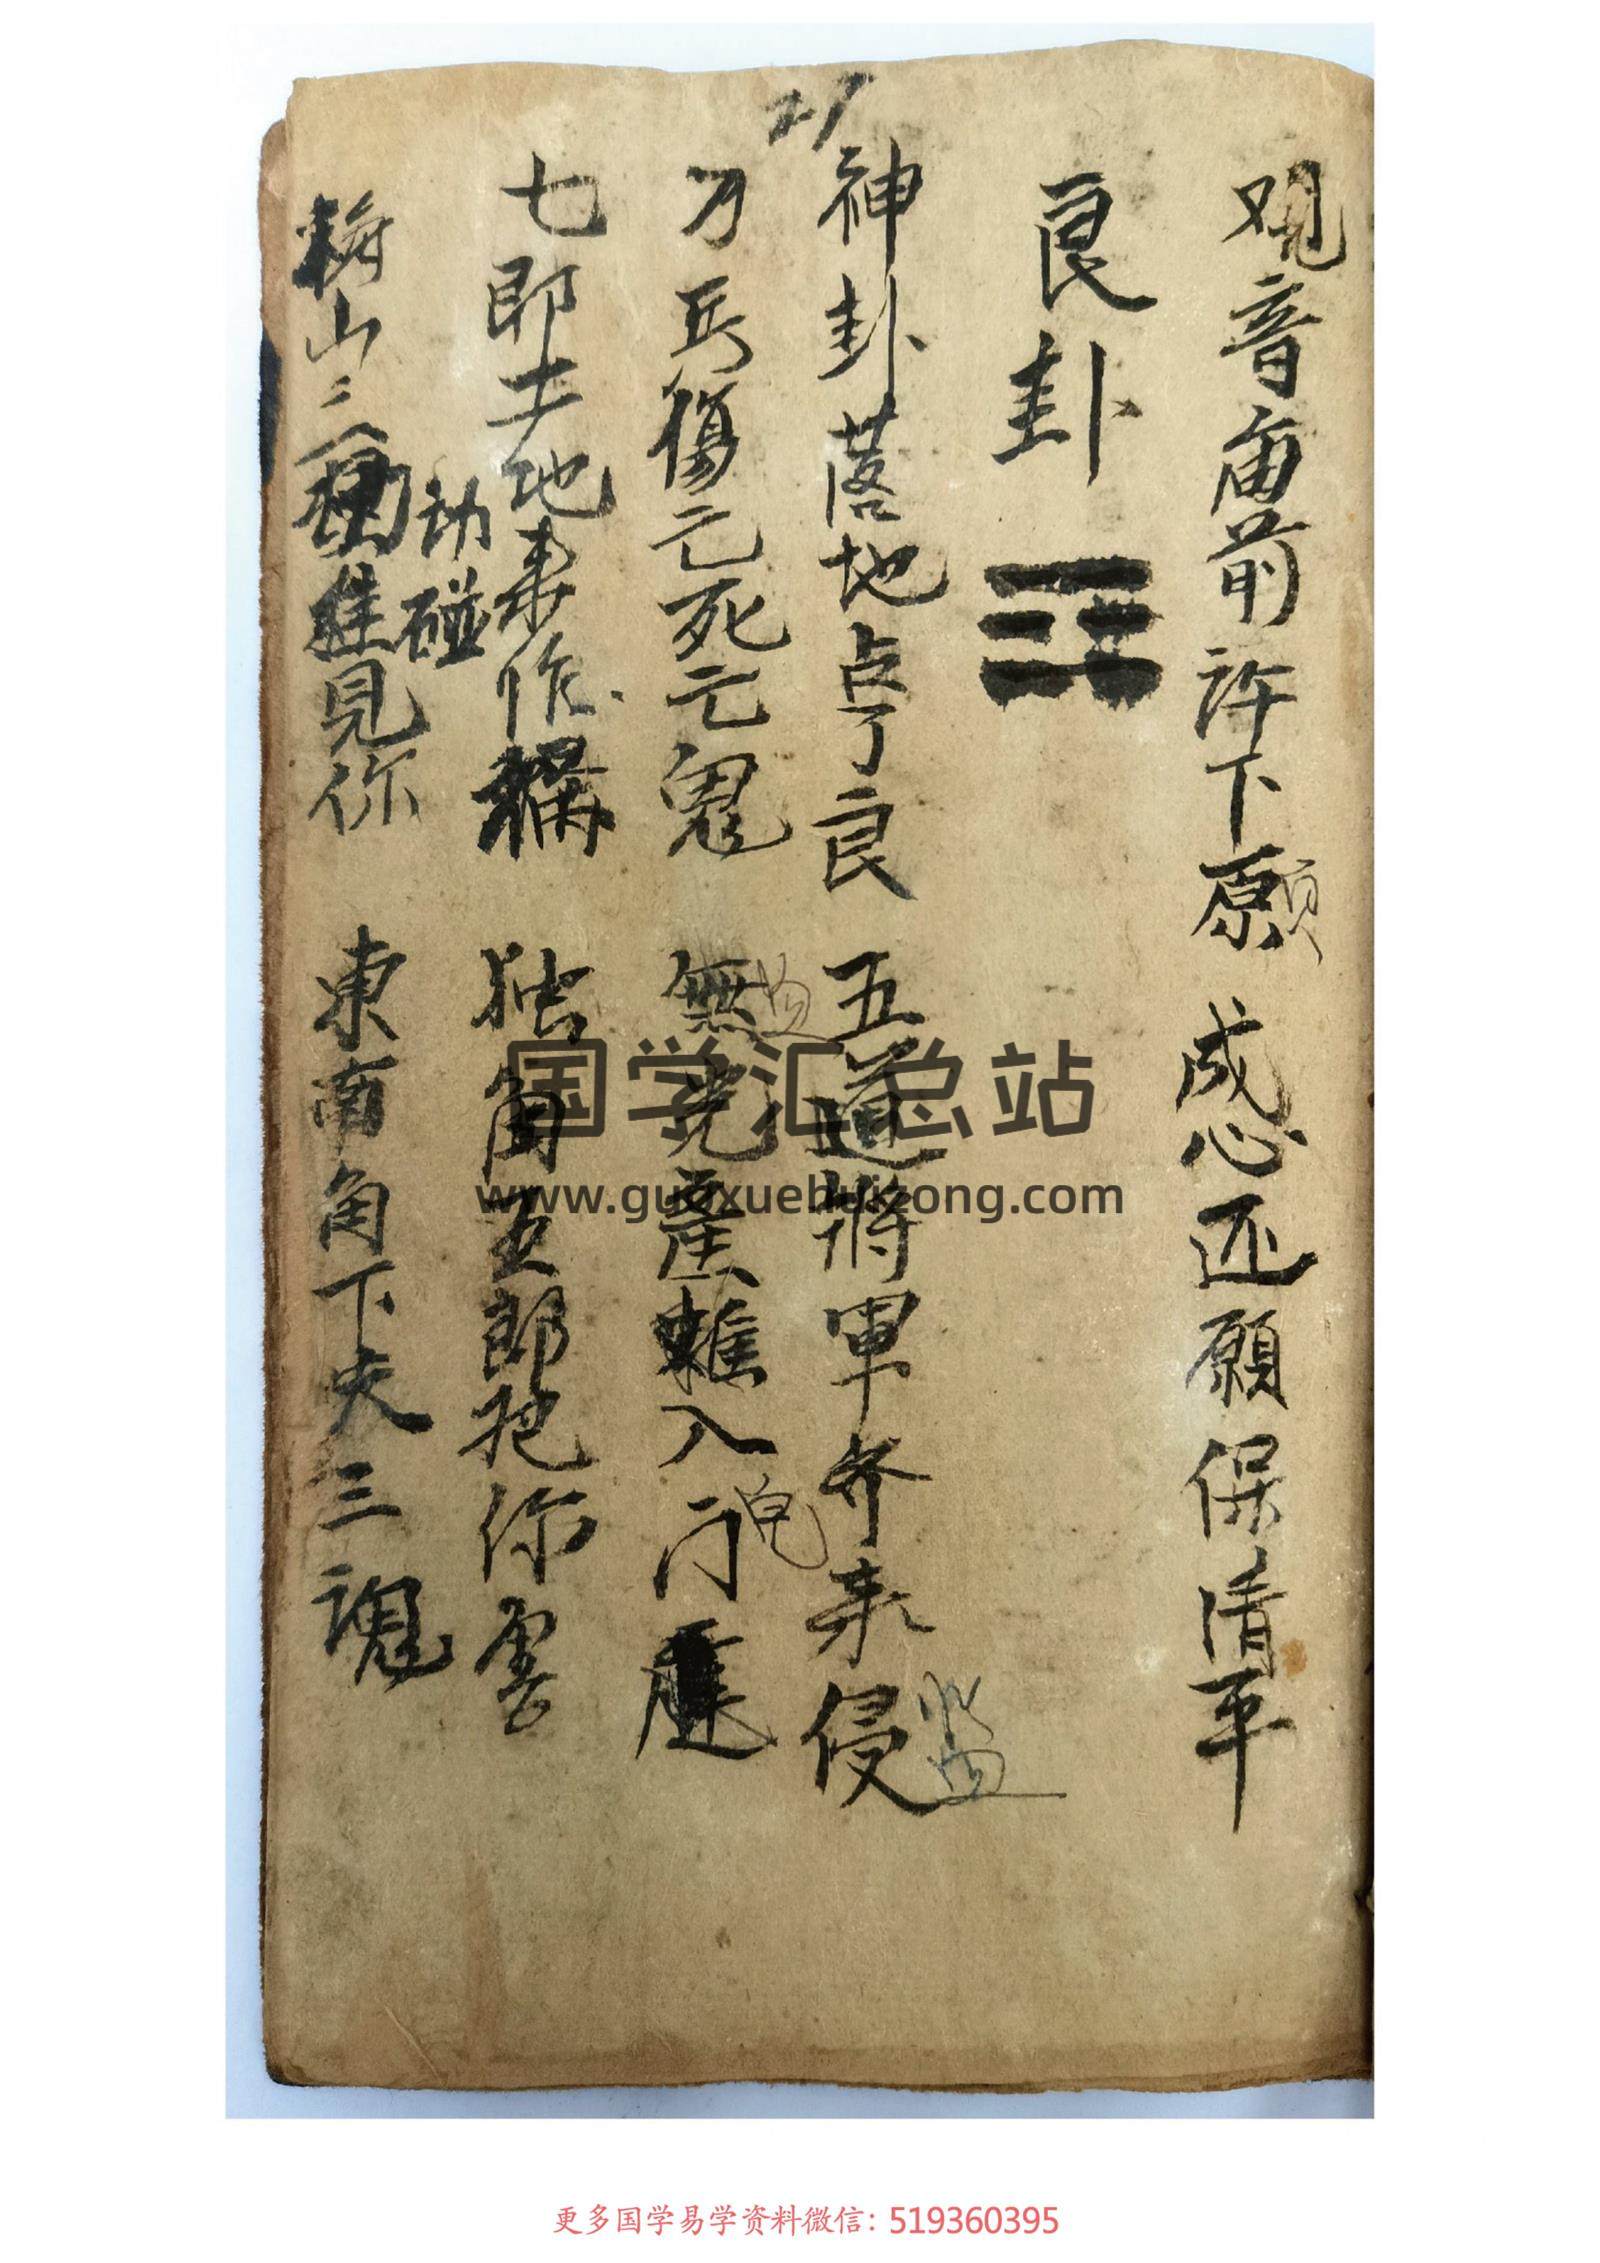 观音角前许下原 成心还願保清平
艮卦
神卦落地占了艮 五道將軍齐来侵
刀兵傷亡死亡鬼 無 産 入门
七郎土地来作 独角五郎把你害
山 見你 東南角下失三魂
动碰
21
国学汇总站
www.guoxuehuizong.com
更多国学易学资料微信：519360395